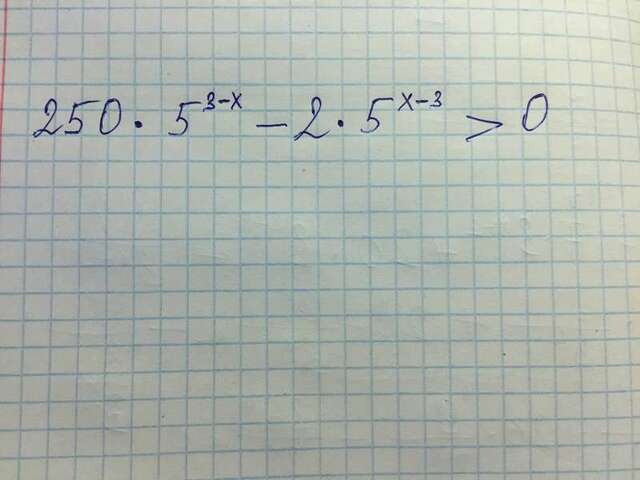 250 · 5^{3-x} - 2 · 5^{x-3} > 0